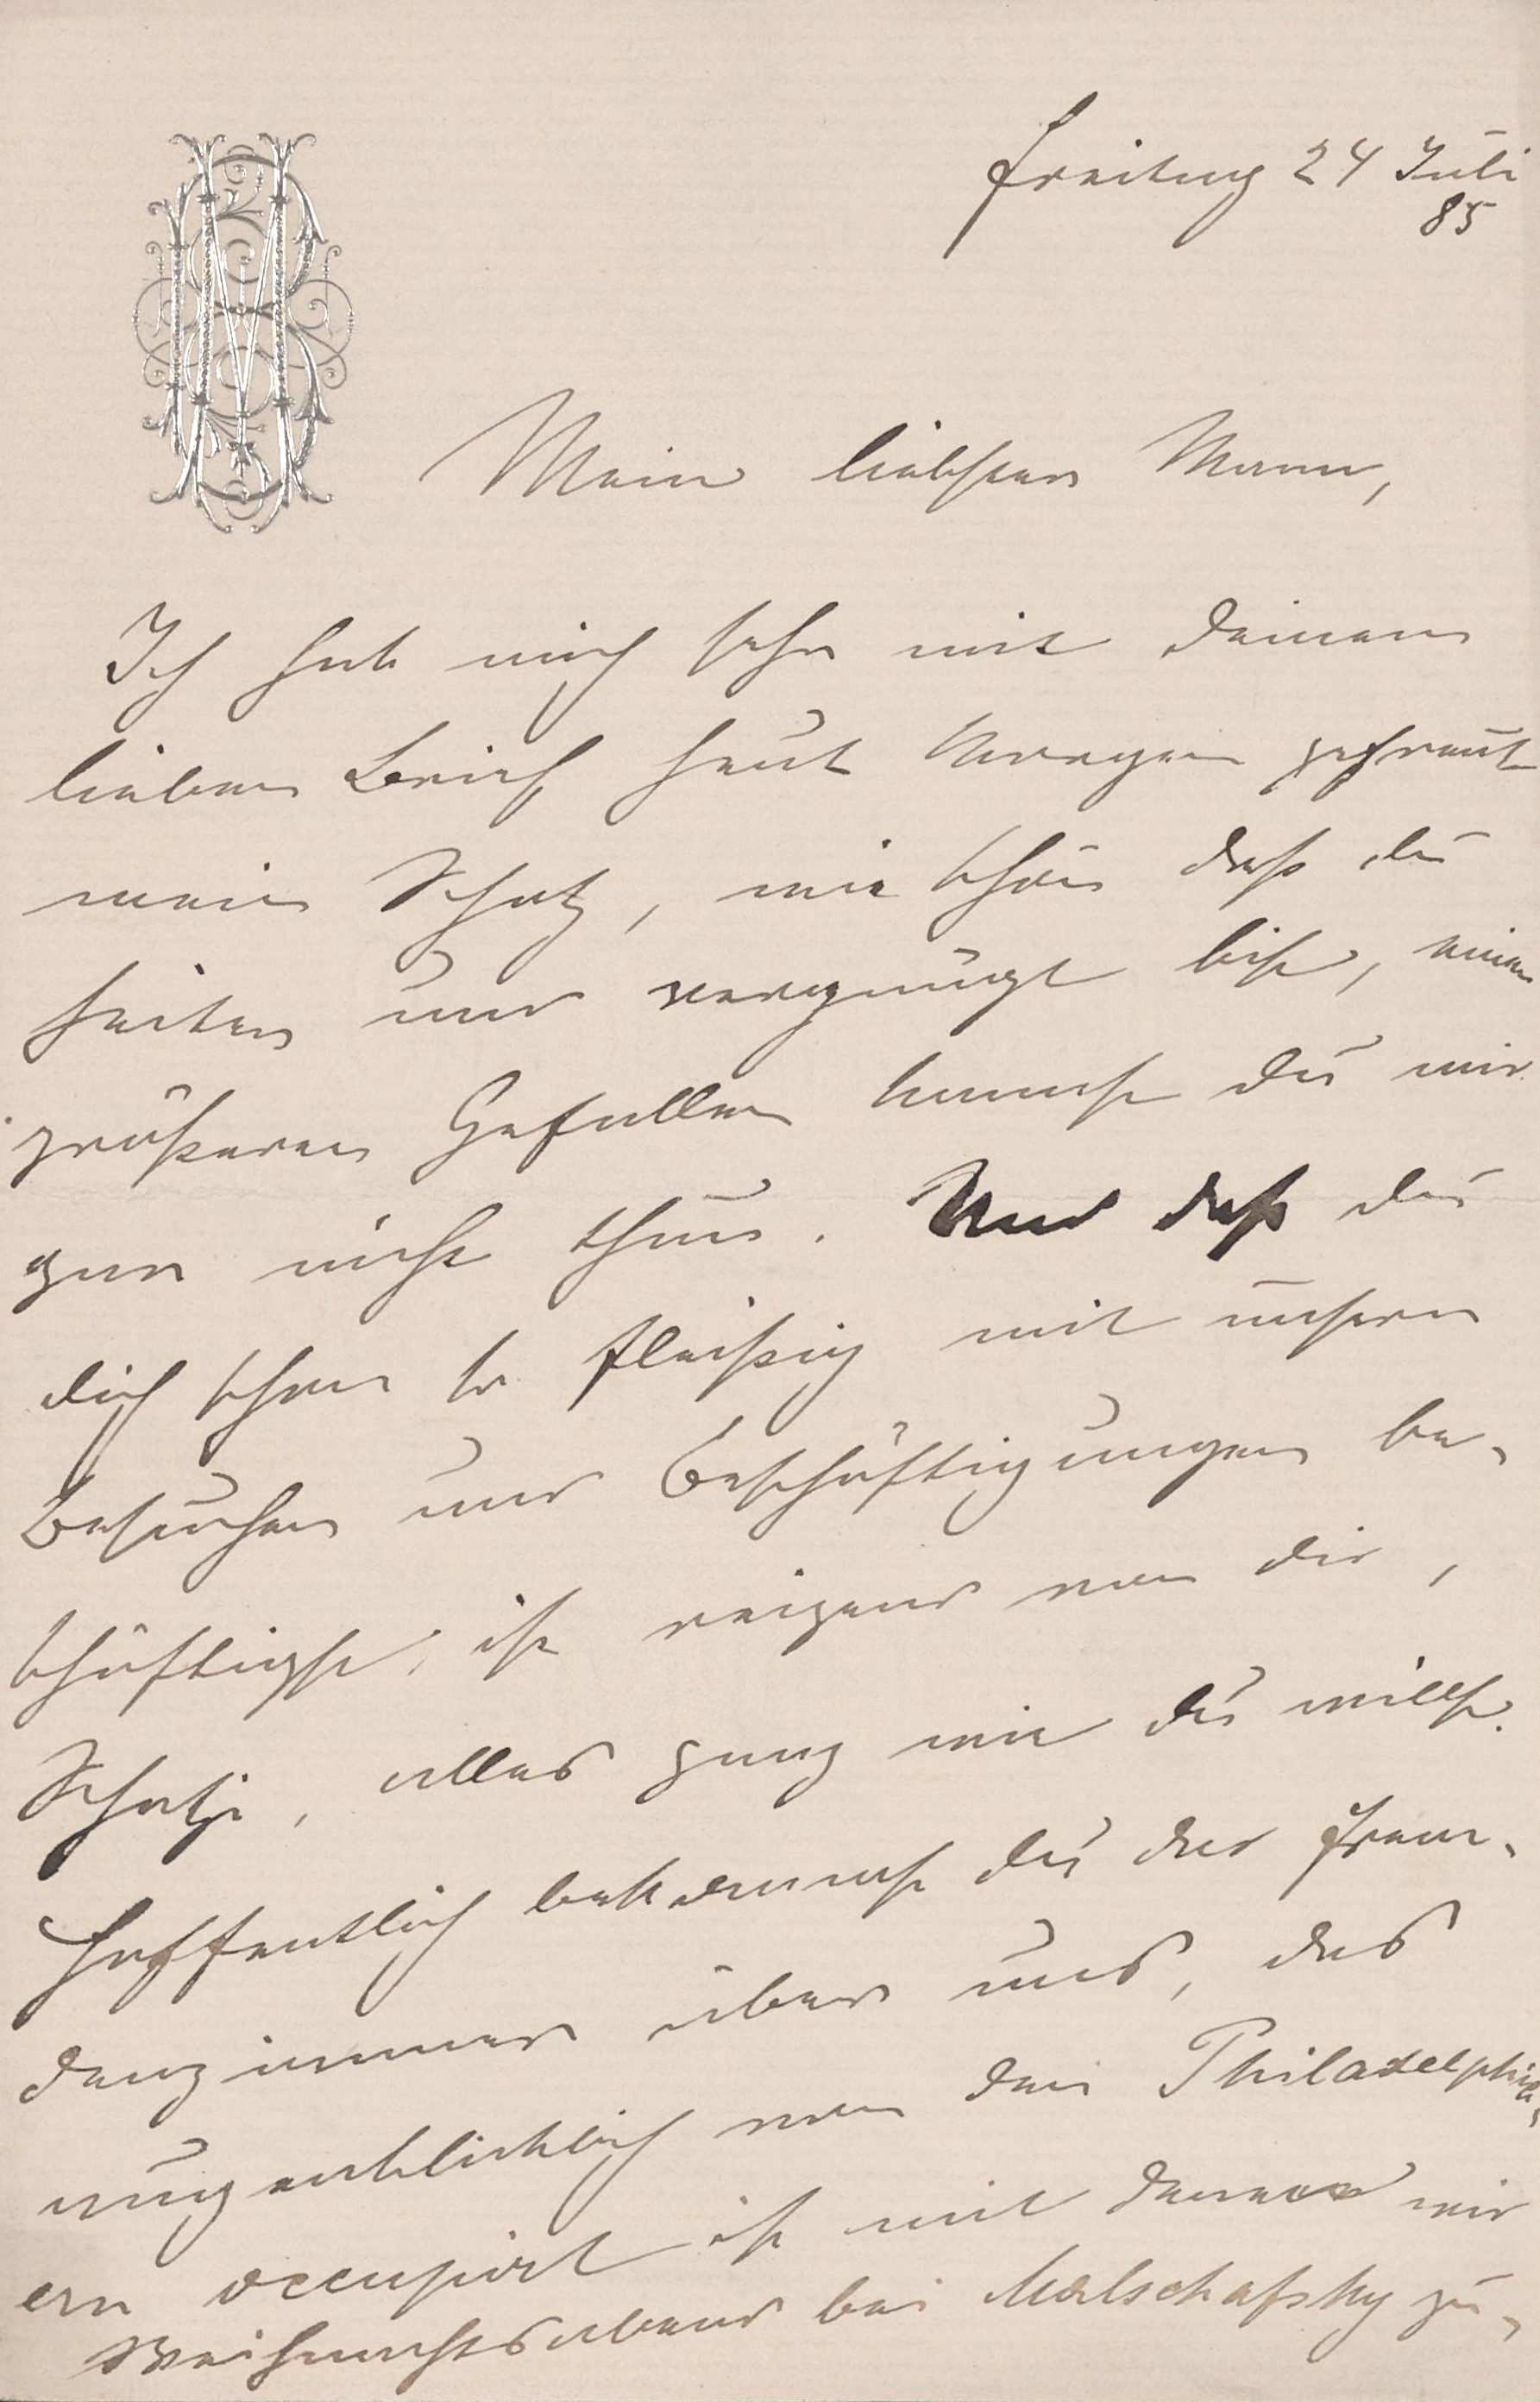 Freitag 24 Juli
85
Mein liebster Mann,
Ich hab mich sehr mit Deinem
lieben Brief heut Morgen gefreut
mein Schatz, wie schön daß du
heiter und vergnügt bist, einen
größeren Gefallen kannst Du mir
gar nicht thun. Und daß du
dich schon so fleißig mit unsern
Besuchen und Beschäftigungen be-
schäftigst, ist reizend von dir,
Schatzi, alles ganz wie du willst.
Hoffentlich bekommst du das Frem-
denzimmer über uns, das
augenblicklich von den Philadelphia-
ern occupirt ist mit denen wir
Weihnachtsabend bei Malschafsky zu-